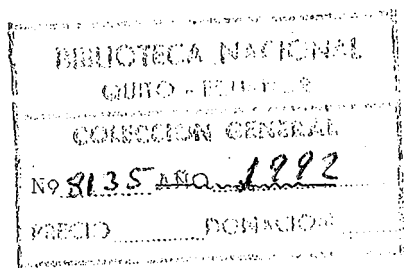 BIBLIOTECA NACIONAL
QUITO - ECUADOR
COLECCION GENERAL
Nº 8135 AÑO 1992
PRECIO DONACION